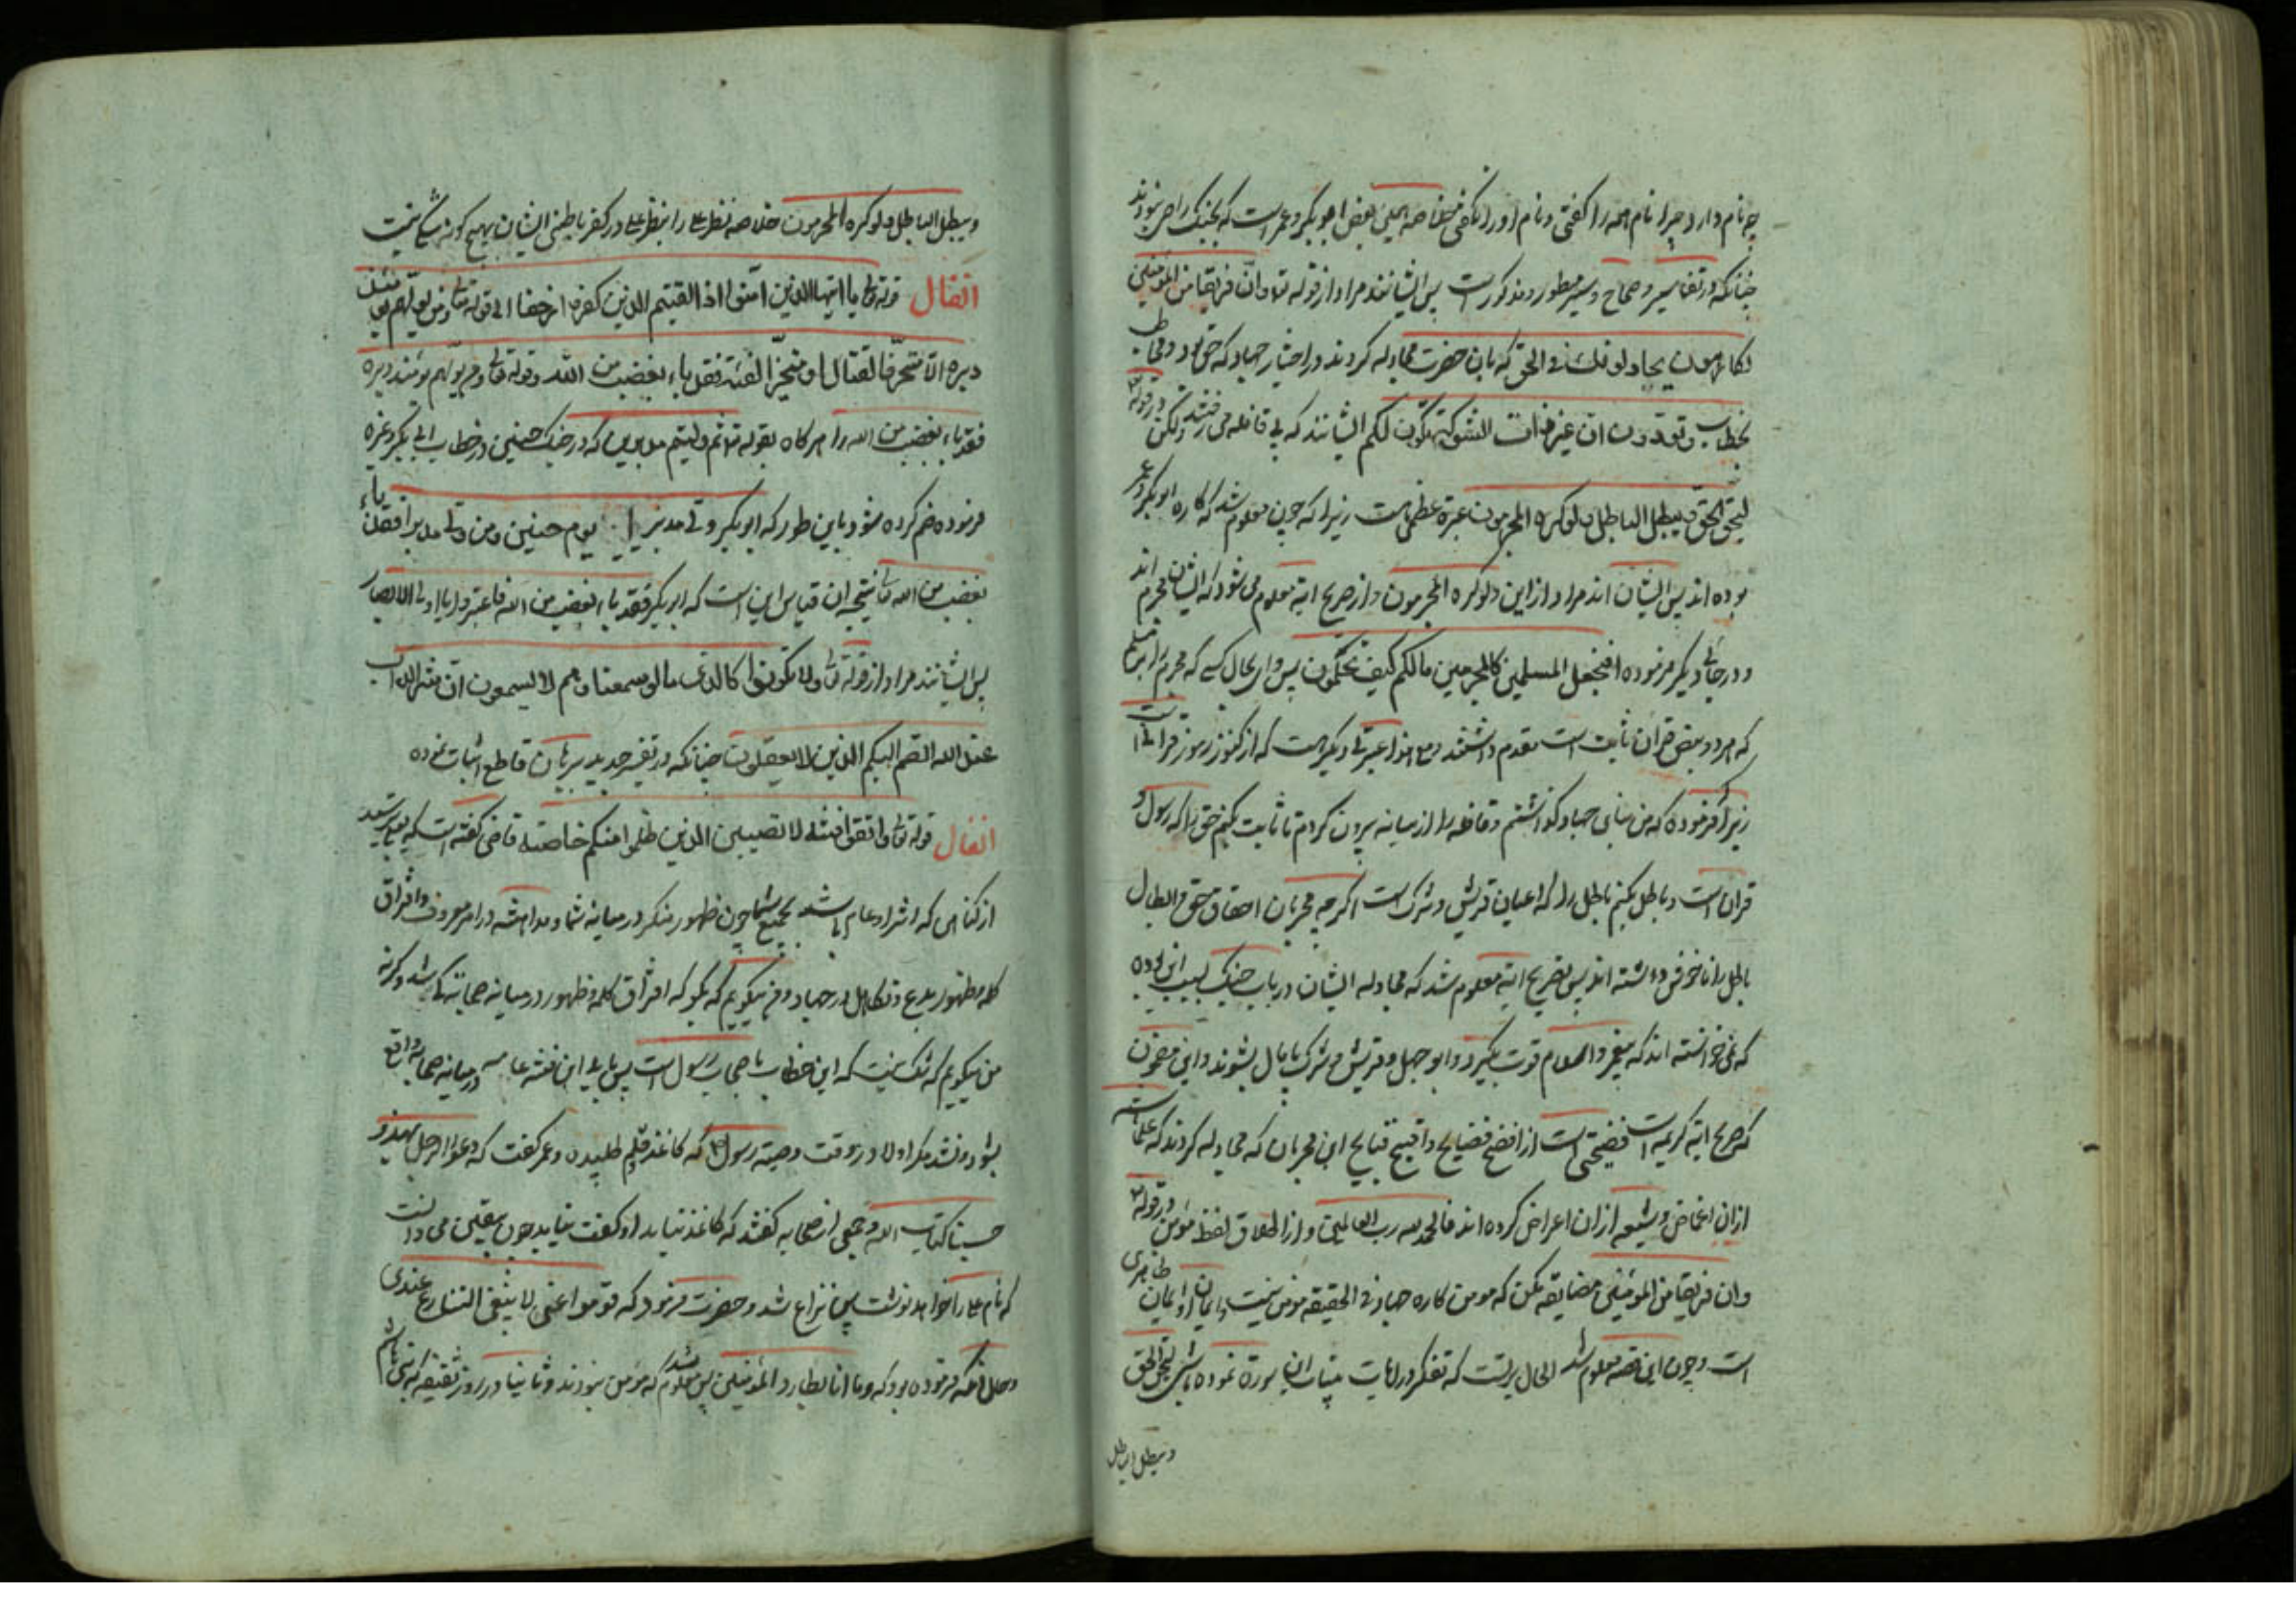 چه نام دارد چرا نام همه را گفتی و نام او را نگفتی خلاصه یعنی بعض ابوبکر و عمر است که بجنگ راضی نبودند
چنانکه در تفاسیر و صحاح و سیر مسطور و مذکور است پس ایشانند مراد از قوله تعا وان فریقا من المؤمنین
لکارهون یجادلونک فی الحق که بان حضرت مجادله کردند در اختیار جهاد که حق بود
بخطاب وتودون ان غیر ذات الشوکة تکون لکم ایشانند که پی قافله می رفتند ولکن در قوله
لیحق الحق ویبطل الباطل ولو کره المجرمون عبرة عظمی است زیرا که چون معلوم شد که کاره ابوبکر و عمر
بوده اند پس ایشان اند مراد از این ولو کره المجرمون و از صریح ایة معلوم می شود که ایشان مجرم اند
و در جائی دیگر فرموده افنجعل المسلمین کالمجرمین مالکم کیف تحکمون پس وای بحال کسی که مجرم را بر مسلم
که هر دو بنص قران ثابت است مقدم داشتند و هنوز عبرتی دیگر هست که از کنوز رموز قرانی است
زیرا فرموده که من بنای جهاد گذاشتم و قافله را از میانه بیرون کردم تا ثابت کنم حق را که رسول و
قران است و باطل بکنم باطل را که اعیان قریش و شرک است اگر چه مجرمان احقاق حق و ابطال
باطل را ناخوش داشته اند پس بصریح ایة معلوم شد که مجادله ایشان در باب جنگ بسبب این بوده
که نمی خواسته اند که پیغمبر و اسلام قوت بگیرد و ابو جهل و قریش و شرک پامال بشوند و این مضمون
که صریح ایة کریمه است فضیحتی است از افضح فضایح و اقبح قبایح این مجرمان که مجادله کردند که علمای سنت
ازان اغماض و شیعه ازان اعراض کرده اند فالحمد لله رب العالمین و از اطلاق لفظ مؤمن در قوله
وان فریقا من المؤمنین مضایقه مکن که مومن کاره جهاد فی الحقیقه مومن نیست و ایمان او ایمان ظاهری
است و چون این قصه معلوم شد الحال بر تست که تفکر در ایات بینات این سورة نموده باشی لیحق الحق
ویبطل الباطل
ویبطل الباطل ولو کره المجرمون خلاصه نظر را بنظر در کفر باطنی ایشان بهیچ گونه شکی نیست
انفال قوله تعالی یا ایها الذین آمنوا اذا لقیتم الذین کفروا زحفا الی قوله تعالی ومن یولهم یومئذ
دبره الا متحرفا لقتال او متحیزا الی فئة فقد باء بغضب من الله وقوله تعالی ومن یولهم یومئذ دبره
فقد باء بغضب من الله را هرگاه بقوله تعا ثم ولیتم مدبرین که در جنگ حنین در خطاب ابی بکر و غیره
فرموده ضم کرده شود باین طور که ابوبکر ولی مدبرا یوم حنین ومن ولی مدبرا فقد باء
بغضب من الله نتیجه ان قیاس این است که ابوبکر فقد باء بغضب من الله فاعتبروا یا اولی الابصار
پس ایشانند مراد از قوله تعالی ولا تکونوا کالذین قالوا سمعنا وهم لا یسمعون ان شر الدواب
عند الله الصم البکم الذین لا یعقلون چنانکه در تفسیر جدید ببرهان قاطع اثبات نموده
انفال قوله تعالی واتقوا فتنة لا تصیبن الذین ظلموا منکم خاصة قاضی گفته است که بپرهیزید
از گناهی که اثر او عام باشد بجمیع شما چون ظهور منکر در میانه شما و مداهنه در امر معروف و افتراق
کلمه و ظهور بدع و تکاهل در جهاد و من میگویم که بگو که افتراق کلمه و ظهور در میانه صحابه کی شد و گرنه
من میگویم که شک نیست که این خطاب باصحاب رسول است پس باید این فتنه عامه در میانه صحابه واقع
بشود و نشد مگر اولا در وقت وصیة رسول که کاغذ و قلم طلبیدند و عمر گفت که دعوا الرجل یهذو
حسبنا کتاب الله و جمعی از صحابه گفتند که کاغذ بیاید او گفت نیاید چون یقین می دانست
که نام علی را خواهد نوشت پس نزاع شد و حضرت فرمود که قوموا عنی لا ینبغی التنازع عندی
و حال انکه فرموده بود که وما انا بطارد المؤمنین پس معلوم شد که مومن نبودند و ثانیا در روز سقیفه